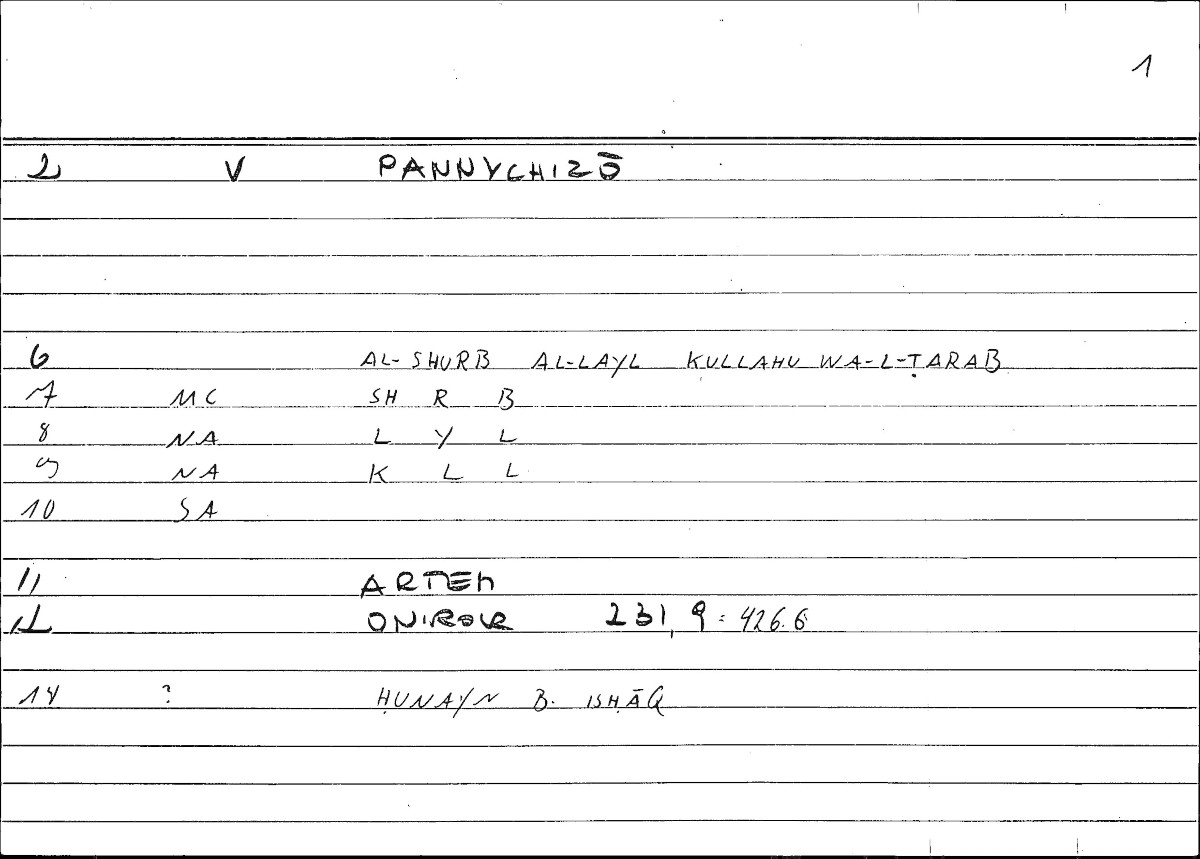 1
2 V PANNYCHIZŌ
6 AL-SHURB AL-LAYL KULLAHU WA-L-ṬARAB
7 MC SH R B
8 NA L Y L
9 NA K L L
10 SA
11 ARTEM
12 ONIROCR 231,9 = 426.6
14 ? ḤUNAYN B. ISḤĀQ